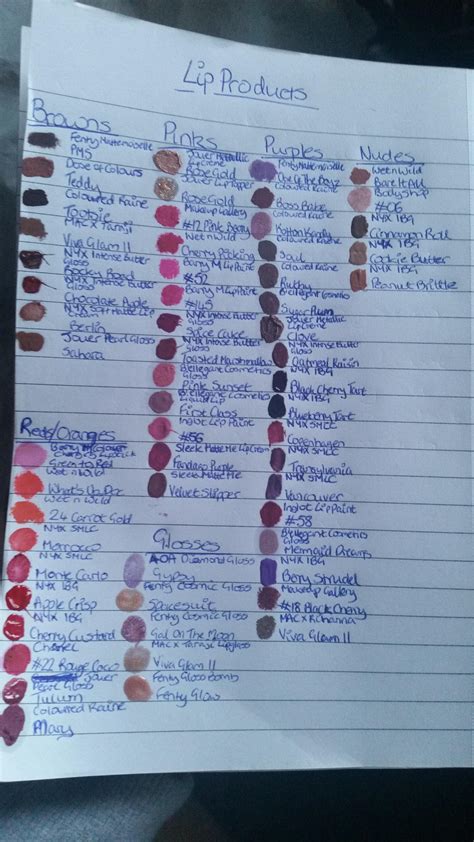 Lip Products
Browns
Fenty Mattemoiselle
PMS
Dose of Colours
Teddy
Coloured Raine
Tootsie
MAC x Taraji
Viva Glam II
NYX Intense Butter
Gloss
Rocky Road
NYX Intense Butter
Gloss
Chocolate Apple
NYX Soft Matte Lip
Berlin
Jouer Pearl Gloss
Sahara
Reds/Oranges
Green to Red
Wet n Wild
What's Up Doc
Wet n Wild
24 Carrot Gold
NYX SMLC
Morrocco
NYX SMLC
Monte Carlo
NYX IBG
Apple Crisp
NYX IBG
Cherry Custard
Chanel
#22 Rouge Coco
Jouer
Pearl Gloss
Tulum
Coloured Raine
Mary
Pinks
Jouer Metallic
Lip Creme
Rose Gold
Jouer Lip Topper
Rose Gold
Makeup Gallery
#12 Pink
Wet n Wild
Cherry Picking
Barry M Lip Paint
#52
Barry M Lip Paint
#145
NYX Intense Butter
Gloss
Spice Cake
NYX Intense Butter
Gloss
Toasted Marshmallow
Bellegant Cosmetics
Gloss
Pink Sunset
Bellegant Cosmetics
Liquid Lip
First Class
Inglot Lip Paint
#56
Sleek Matte Me Lip Cream
Fandango Purple
Sleek Matte Me
Velvet Slipper
Glosses
AOA Diamond Gloss
Gypsy
Fenty Cosmic Gloss
Spacesuit
Fenty Cosmic Gloss
Gal On The Moon
MAC x Taraji Lipglass
Viva Glam II
Fenty Gloss Bomb
Fenty Glow
Purples
Fenty Mattemoiselle
One Of The Boyz
Coloured Raine
Boss Babe
Coloured Raine
Kotton Kandy
Coloured Raine
Soul
Coloured Raine
Ruthy
Bellegant Cosmetics
Sugar Plum
Jouer Metallic
Lip Creme
Clove
NYX Intense Butter
Gloss
Oatmeal Raisin
NYX IBG
Black Cherry Tart
NYX IBG
Blueberry Tart
NYX SMLC
Copenhagen
NYX SMLC
Transylvania
NYX SMLC
Vancouver
Inglot Lip Paint
#58
Bellegant Cosmetics
Gloss
Mermaid Dreams
NYX IBG
Berry Strudel
Makeup Gallery
#18 Black Cherry
MAC x Rihanna
Viva Glam II
Nudes
Wet n Wild
Bare It All
Body Shop
#06
NYX IBG
Cinnamon Roll
NYX IBG
Cookie Butter
NYX IBG
Peanut Brittle